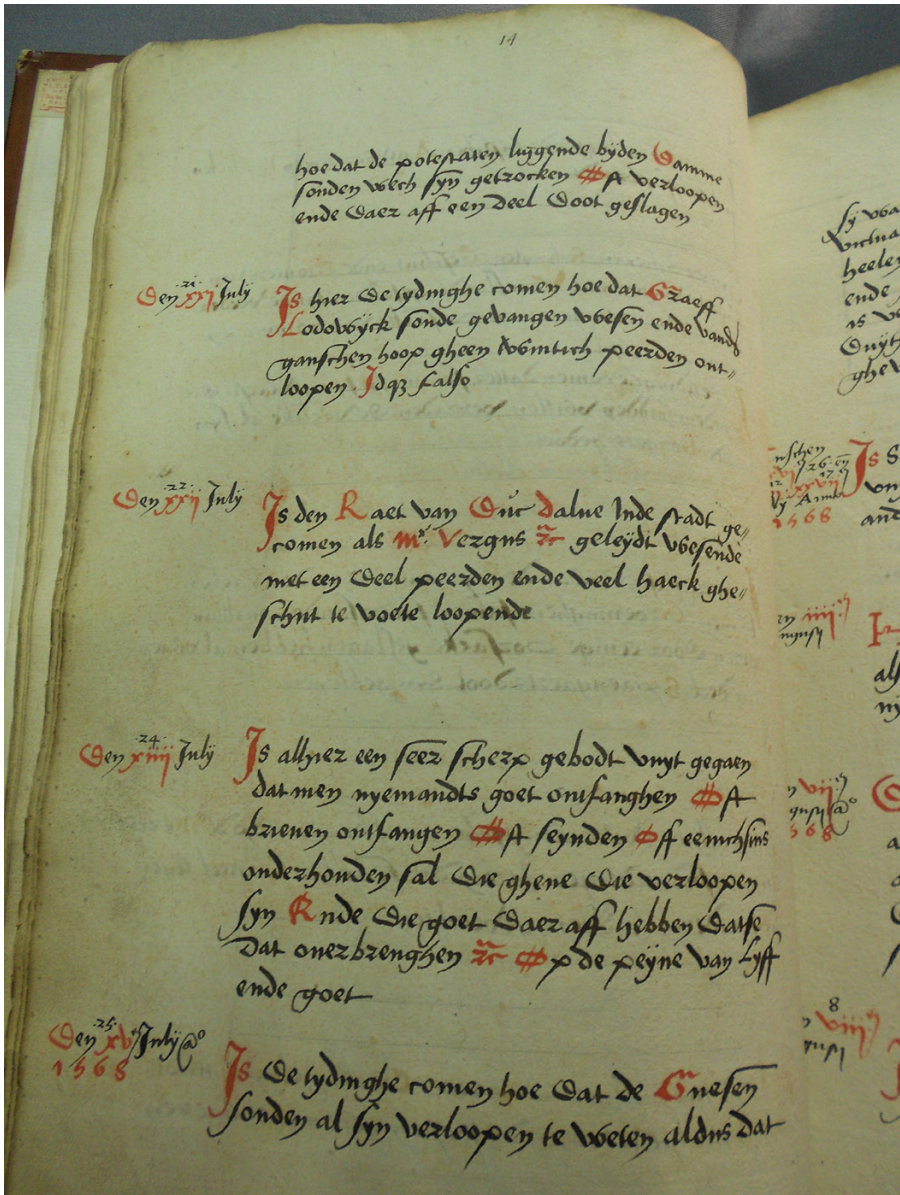 14
hoe dat de potestaten liggende byden Damme
sonden wech syn getrocken Oft verloopen
ende daer aff een deel doot geslagen
21
Den xxj July
Is hier de tydinghe comen hoe dat Graeff
Lodowyck sonde gevangen wesen ende vand
ganschen hoop gheen twintich peerden ont=
loopen. Idq3 falso
22
Den xxij July
Is den Raet van Duc Dalue Inde stadt ge=
comen als Mr Vergus etc geleydt wesende
met een deel peerden ende veel haeck ghe=
schut te voete loopende
24
Den xiiij July
Is alhier een seer scherp gebodt vuyt gegaen
dat men nyemandts goet ontfanghen Oft
brieuen ontfangen Oft seynden Off eenichsins
onderhouden sal die ghene die verloopen
syn Ende die goet daer aff hebben datse
dat ouerbrenghen etc Op de peyne van Lyff
ende goet
25
Den xv July ao
1568
Is de tydinghe comen hoe dat de Guesen
sonden al syn verloopen te weten aldus dat
sy
heelen
ende
is
1568
Is
8
viij